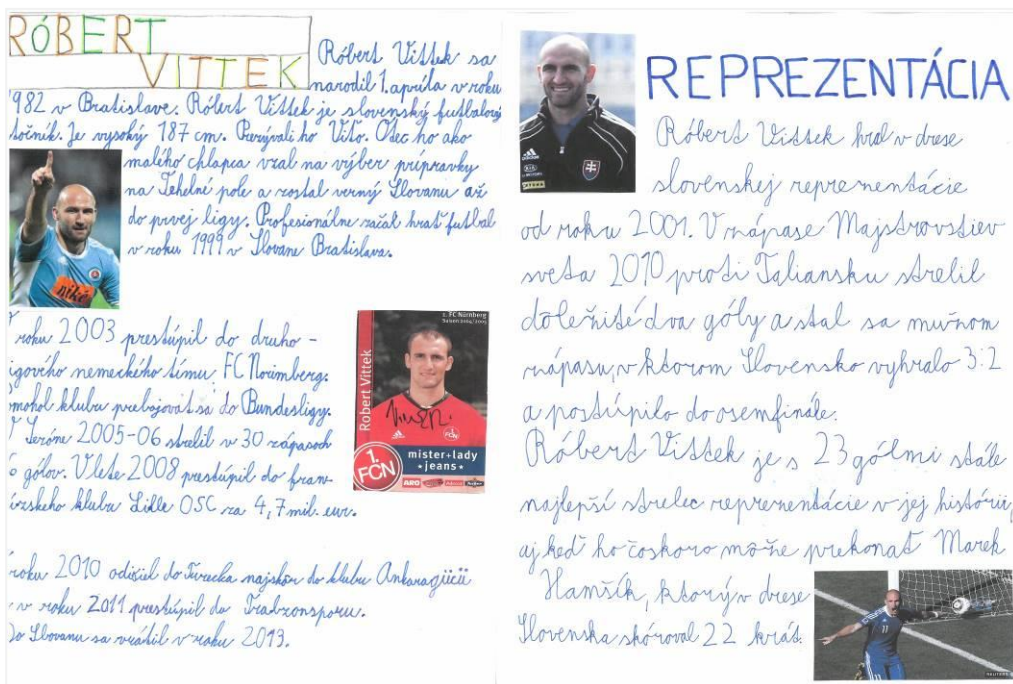 RÓBERT
VITTEK
Róbert Vittek sa
narodil 1. apríla v roku
1982 v Bratislave. Róbert Vittek je slovenský futbalový
útočník. Je vysoký 187 cm. Prezývali ho Vito. Otec ho ako
malého chlapca vzal na výber prípravky
na Tehelné pole a zostal verný Slovanu až
do prvej ligy. Profesionálne začal hrať futbal
v roku 1999 v Slovane Bratislava.
niké
roku 2003 prestúpil do druho-
igového nemeckého tímu FC Norimberg.
omohol klubu prebojovať sa do Bundesligy.
V sezóne 2005-06 strelil v 30 zápasoch
6 gólov. V lete 2008 prestúpil do fran-
úzskeho klubu Lille OSC za 4,7 mil. eur.
1. FC Nürnberg
Saison 2004/2005
Robert Vittek
1. FCN
mister+lady
jeans
ARO
roku 2010 odišiel do Turecka najskôr do klubu Ankaragücü
v roku 2011 prestúpil do Trabzonsporu.
Do Slovanu sa vrátil v roku 2013.
adidas
REPREZENTÁCIA
Róbert Vittek hral v drese
slovenskej reprezentácie
od roku 2001. V zápase Majstrovstiev
sveta 2010 proti Taliansku strelil
dôležité dva góly a stal sa mužom
zápasu, v ktorom Slovensko vyhralo 3:2
a postúpilo do osemfinále.
Róbert Vittek je s 23 gólmi stále
najlepší strelec reprezentácie v jej histórii,
aj keď ho čoskoro môže prekonať Marek
Hamšík, ktorý v drese
Slovenska skóroval 22 krát.
11
REUTERS